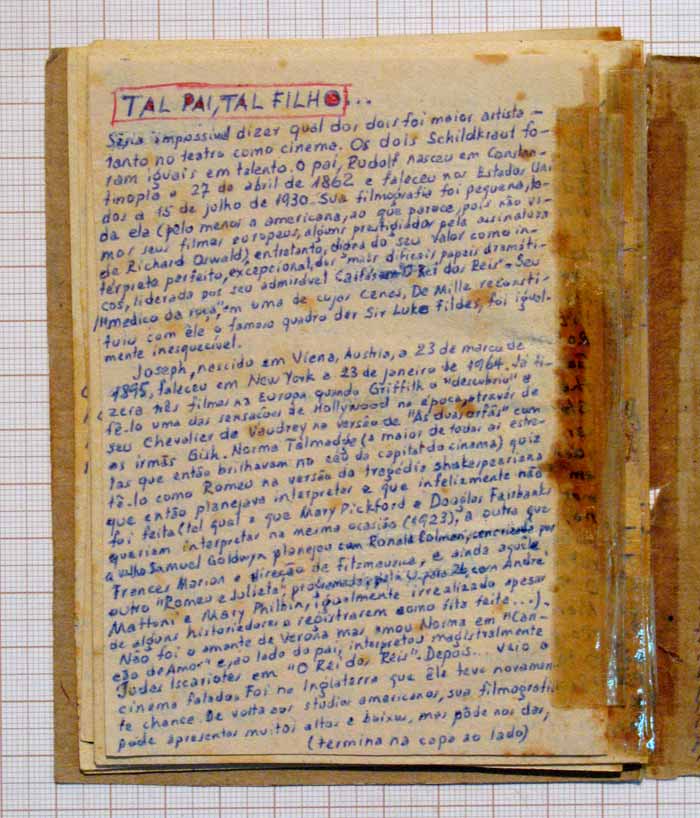 TAL PAI, TAL FILHO...
Seria impossivel dizer qual dos dois foi maior artista -
tanto no teatro como cinema. Os dois Schildkraut fo-
ram iguais em talento. O pai, Rudolf nasceu em Constan-
tinopla a 27 de abril de 1862 e faleceu nos Estados Uni
dos a 15 de julho de 1930. Sua filmografia foi pequena, to-
da ela (pelo menos a americana, ao que parece, pois não vi-
mos seus filmes europeus, alguns prestigiados pela assinatura
de Richard Oswald) entretanto, digna do seu valor como in-
terprete perfeito, excepcional, dos mais dificeis papeis dramáti-
cos, liderada por seu admirável Caifás em "O Rei dos Reis" - Seu
medico da roça, em uma de cujas cenas, De Mille reconsti-
tuiu com êle o famoso quadro der Sir Luke Fildes, foi igual-
mente inesquecível.
Joseph, nascido em Viena, Austria, a 23 de março de
1895, faleceu em New York a 23 de janeiro de 1964. Já fi-
zera três filmes na Europa quando Griffith o "descobriu" e
fê-lo uma das sensações de Hollywood na época, através de
seu Chevalier de Vaudrey na versão de "As duas orfãs" com
as irmãs Gish. Norma Talmadge (a maior de todas as estre-
las que então brilhavam no céu da capital do cinema) quiz
tê-lo como Romeu na versão da tragédia shakespeariana
que então planejava interpretar e que infelizmente não
foi feita (tal qual a que Mary Pickford e Douglas Fairbanks
queriam interpretar na mesma ocasião (1923), a outra que
o velho Samuel Goldwyn planejou com Ronald Colman, por
Frances Marion e direção de Fitzmaurice, e ainda aquele
outro "Romeo e Julieta" programado pela U. para 26, com André
Mattoni e Mary Philbin, igualmente irrealizado apesar
de alguns historiadores o registrarem como fita feita...).
Não foi o amante de Verona mas amou Norma em "Can-
ção de Amor" e ao lado do pai, interpretou magistralmente
Judas Iscariotes em "O Rei dos Reis". Depois... veio o
cinema falado. Foi na Inglaterra que êle teve novamen-
te chance. De volta aos studios americanos, sua filmografia
pode apresentar muitos altos e baixos, mas pôde nos dar,
(termina na capa ao lado)